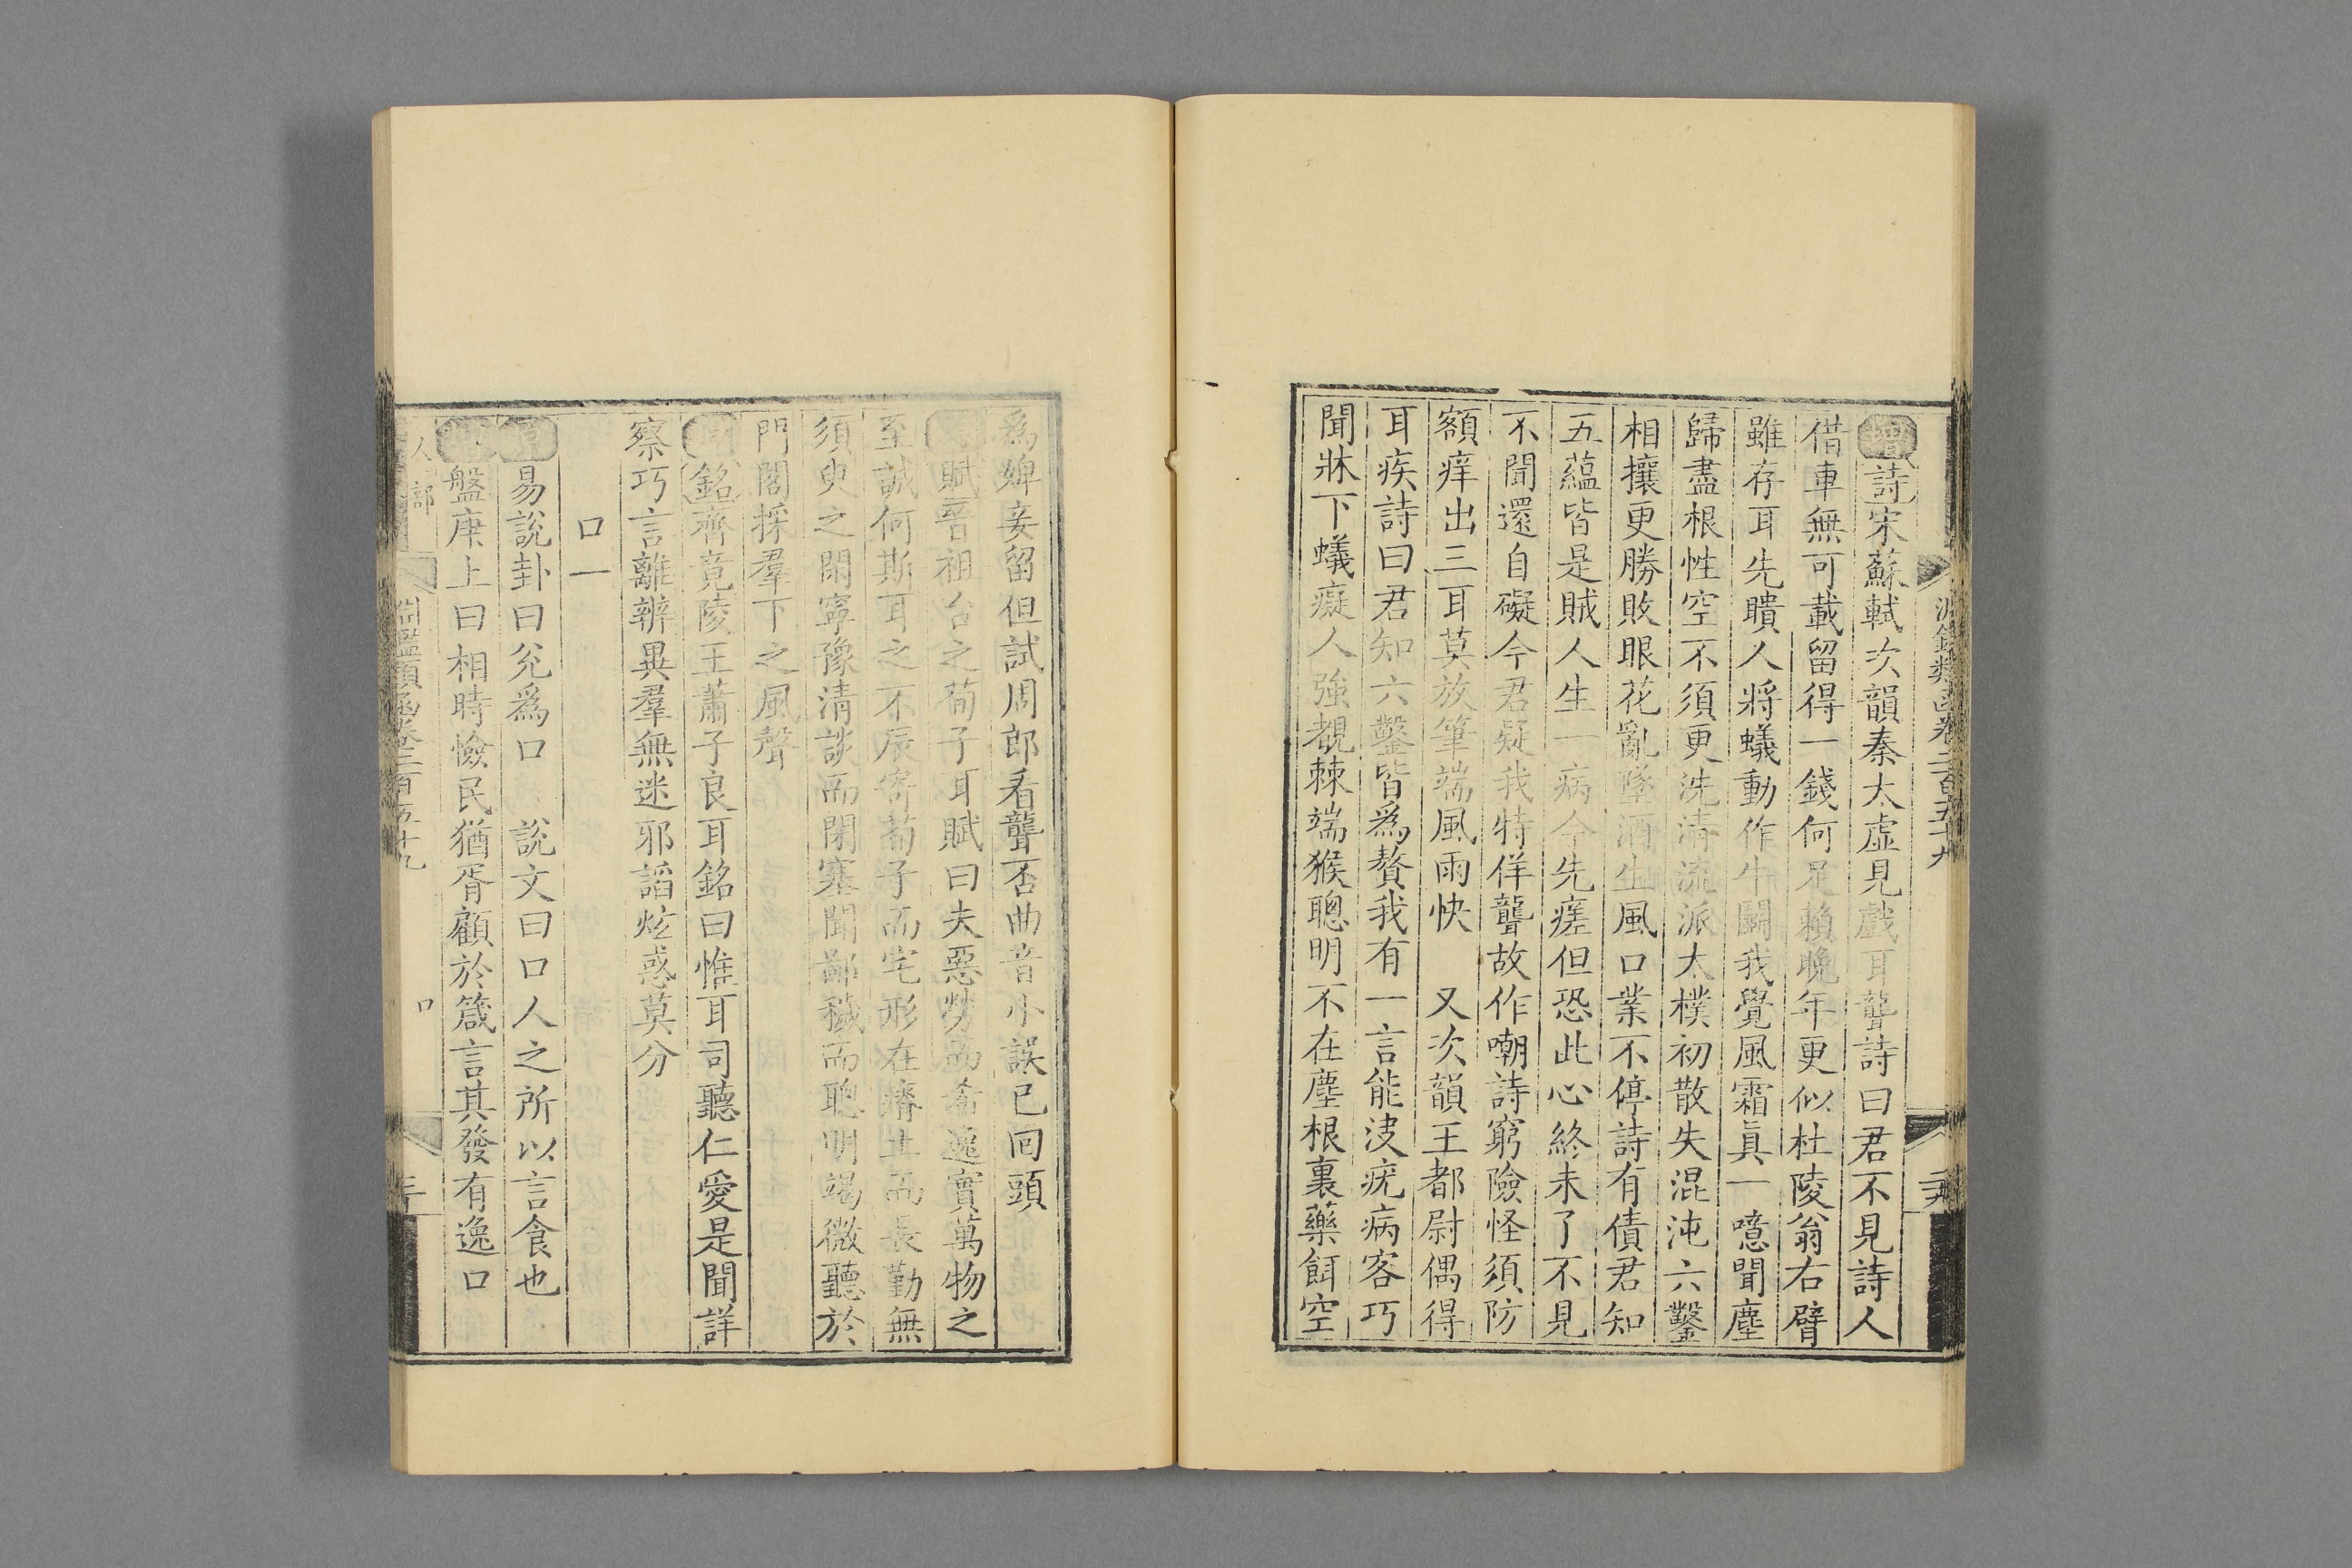 增詩宋蘇軾次韻秦太虛見戲耳聾詩曰君不見詩人
借車無可載留得一錢何足賴晚年更似杜陵翁右臂
雖存耳先聵人將蟻動作牛鬭我覺風霜真一噫聞塵
歸盡根性空不須更洗清流派大樸初散失混沌六鑿
相攘更勝敗眼花亂墜酒生風口業不停詩有債君知
五蘊皆是賊人生一病今先瘥但恐此心終未了不見
不聞還自礙今君疑我特佯聾故作嘲詩窮險怪須防
額痒出三耳莫放筆端風雨快 又次韻王都尉偶得
耳疾詩曰君知六鑿皆為贅我有一言能決疣病客巧
聞牀下蟻癡人強覩棘端猴聰明不在塵根裏藥餌空
為婢妾留但試周郎看聾否曲音小誤已回頭
賦晉祖台之荀子耳賦曰夫惡勞而希逸實萬物之
至誠何斯耳之不辰寄荀子而宅形在瘠土而長勤無
須臾之閑寧豫清談而閉塞聞鄙穢而聰明竭微聽於
門閤採羣下之風聲
銘齊竟陵王蕭子良耳銘曰惟耳司聽仁愛是聞詳
察巧言離辨異羣無迷邪諂炫惑莫分
口一
易說卦曰兊為口 說文曰口人之所以言食也
盤庚上曰相時憸民猶胥顧於箴言其發有逸口
人部 淵鑑類函卷二百五十九 口